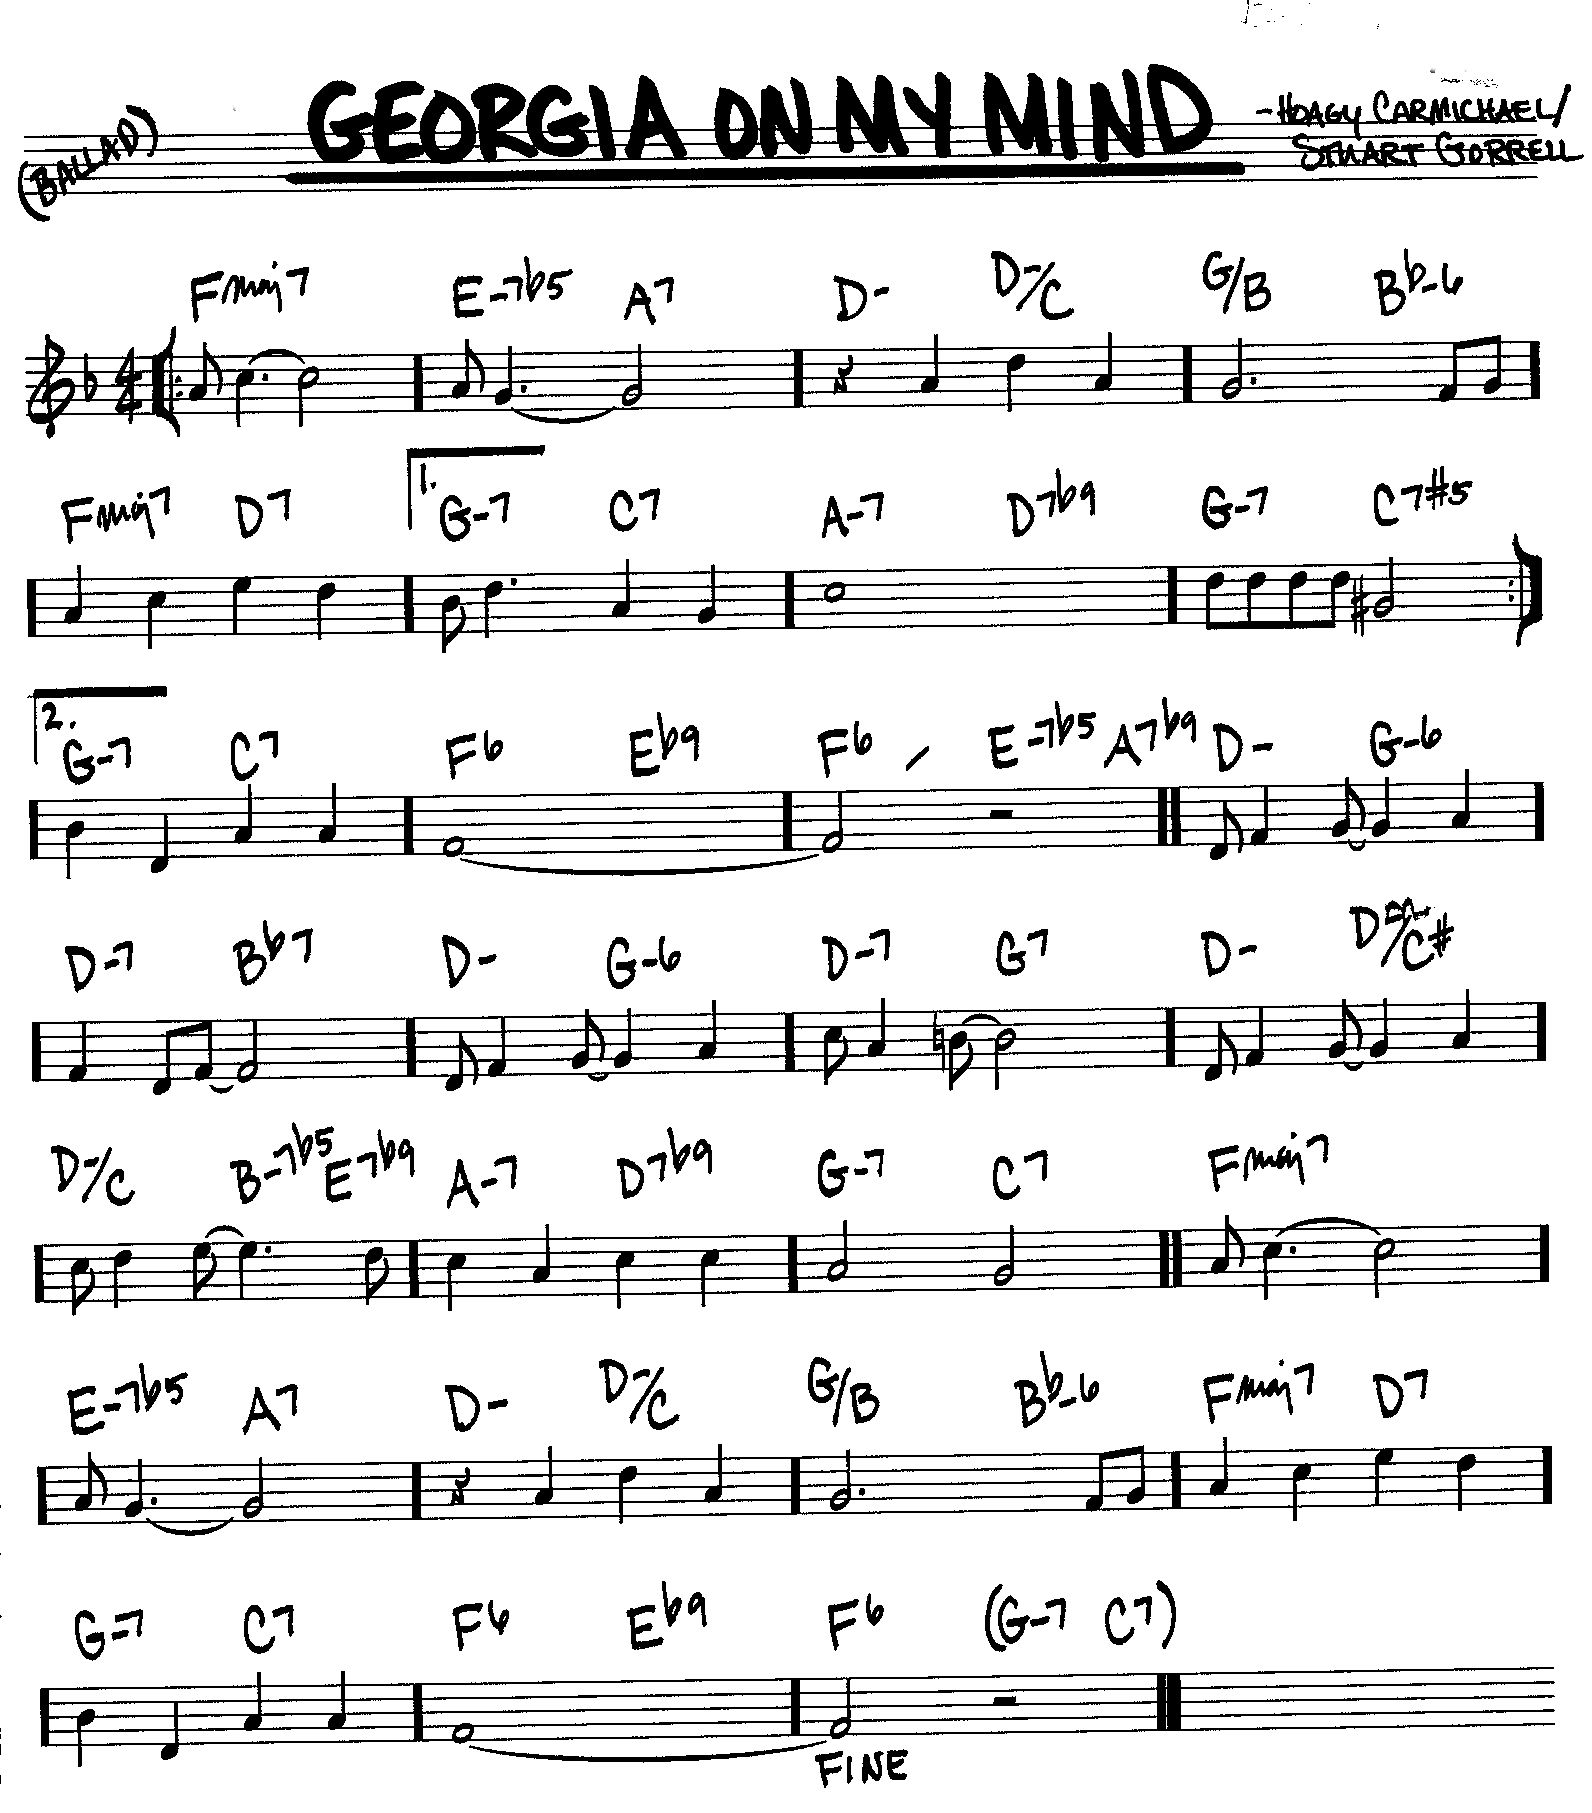 GEORGIA ON MY MIND
(BALLAD)
-HOAGY CARMICHAEL/
STUART GORRELL
Fmaj7 E-7b5 A7 D- D-/C G/B Bb-6
4/4
1.
Fmaj7 D7 G-7 C7 A-7 D7b9 G-7 C7#5
2.
G-7 C7 F6 Eb9 F6 / E-7b5 A7b9 D- G-6
D-7 Bb7 D- G-6 D-7 G7 D- D-/C#
D-/C B-7b5 E7b9 A-7 D7b9 G-7 C7 Fmaj7
E-7b5 A7 D- D-/C G/B Bb-6 Fmaj7 D7
G-7 C7 F6 Eb9 F6 (G-7 C7)
FINE